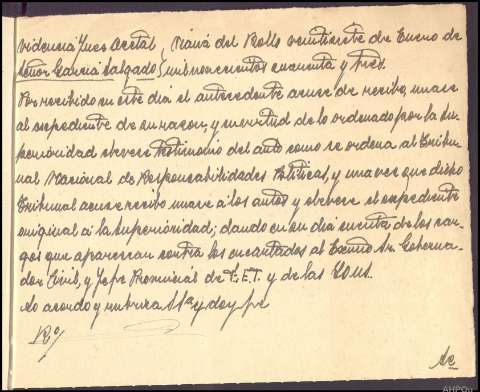 videncia Juez Acctal } Rianá del Bollo veintisiete de Enero de
Señor Garcia Salgado } mil novecientos cuarenta y tres.
Por recibido en este dia el antecedente acuse de recibo, unase
al expediente de su razon, y en virtud de lo ordenado por la Su-
perioridad elevese testimonio del auto como se ordena al Tribu-
nal Nacional de Responsabilidades Politicas, y una vez que dicho
Tribunal acuse recibo unase a los autos y elevese el expediente
original a la Superioridad; dando en su dia cuenta de los car-
gos que aparezcan contra los encartados al Excmo Sr. Goberna-
dor Civil, y Jefe Provincial de F.E.T. y de las Jons.
Lo acordo y rubrica Sª y doy fe
Rº/
AHPOu